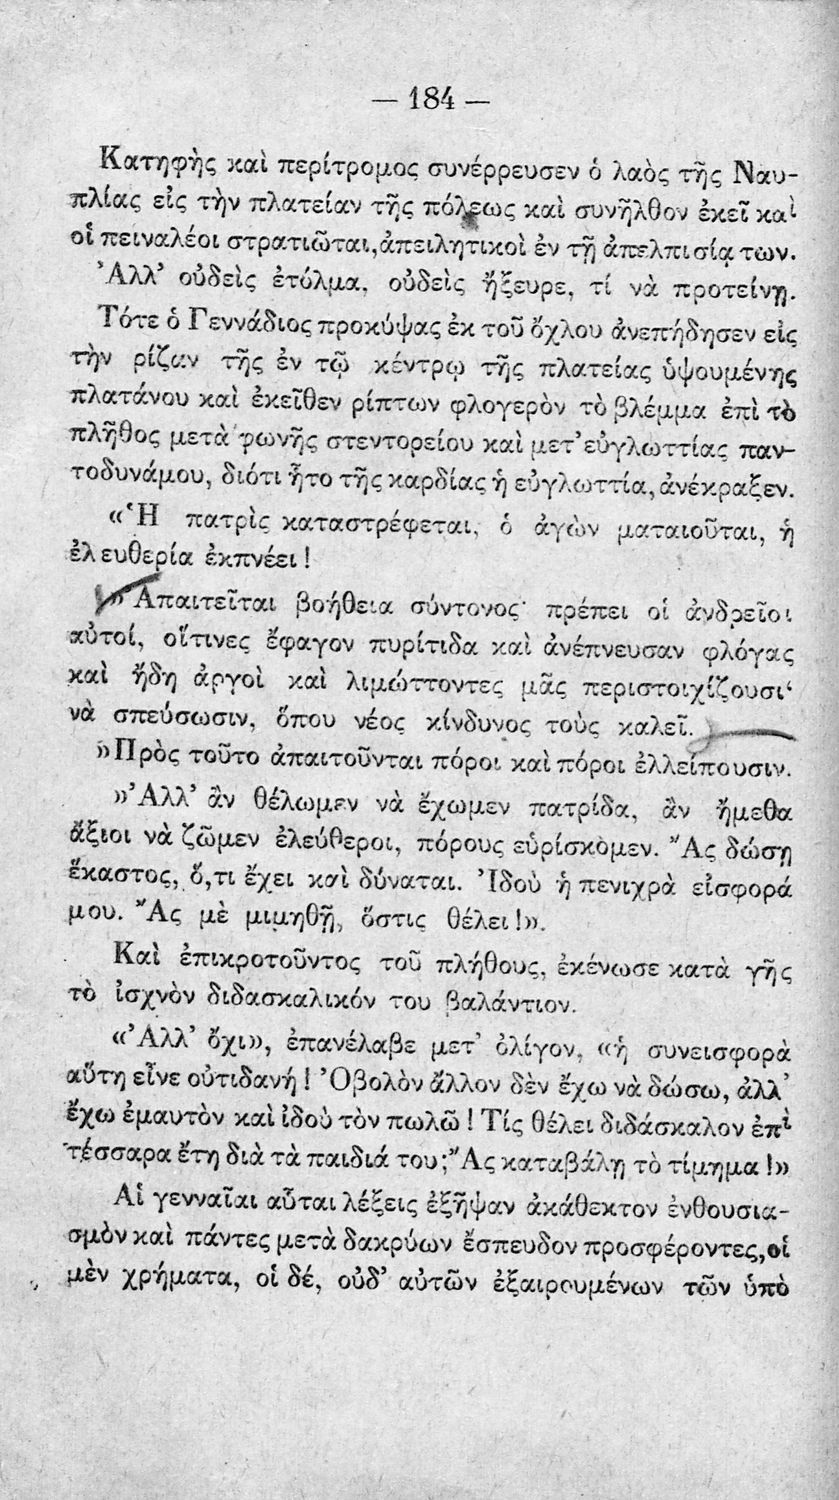 — 184 —
Κατηφὴς καὶ περίτρομος συνέρρευσεν ὁ λαὸς τῆς Ναυ-
πλίας εἰς τὴν πλατείαν τῆς πόλεως καὶ συνῆλθον ἐκεῖ καὶ
οἱ πειναλέοι στρατιῶται, ἀπειλητικοὶ ἐν τῇ ἀπελπισίᾳ των.
Ἀλλ’ οὐδεὶς ἐτόλμα, οὐδεὶς ἤξευρε, τί νὰ προτείνῃ.
Τότε ὁ Γεννάδιος προκύψας ἐκ τοῦ ὄχλου ἀνεπήδησεν εἰς
τὴν ρίζαν τῆς ἐν τῷ κέντρῳ τῆς πλατείας ὑψουμένης
πλατάνου καὶ ἐκεῖθεν ρίπτων φλογερὸν τὸ βλέμμα ἐπὶ τὸ
πλῆθος μετὰ φωνῆς στεντορείου καὶ μετ’ εὐγλωττίας παν-
τοδυνάμου, διότι ἦτο τῆς καρδίας ἡ εὐγλωττία, ἀνέκραξεν.
«Ἡ πατρὶς καταστρέφεται, ὁ ἀγὼν ματαιοῦται, ἡ
ἐλευθερία ἐκπνέει !
»Ἀπαιτεῖται βοήθεια σύντονος· πρέπει οἱ ἀνδρεῖοι
αὐτοί, οἵτινες ἔφαγον πυρίτιδα καὶ ἀνέπνευσαν φλόγας
καὶ ἤδη ἀργοὶ καὶ λιμώττοντες μᾶς περιστοιχίζουσι‘
νὰ σπεύσωσιν, ὅπου νέος κίνδυνος τοὺς καλεῖ.
»Πρὸς τοῦτο ἀπαιτοῦνται πόροι καὶ πόροι ἐλλείπουσιν.
»Ἀλλ’ ἂν θέλωμεν νὰ ἔχωμεν πατρίδα, ἂν ἤμεθα
ἄξιοι νὰ ζῶμεν ἐλεύθεροι, πόρους εὑρίσκομεν. Ἂς δώσῃ
ἕκαστος, ὅ,τι ἔχει καὶ δύναται. Ἰδοὺ ἡ πενιχρὰ εἰσφορά
μου. Ἂς μὲ μιμηθῇ, ὅστις θέλει !».
Καὶ ἐπικροτοῦντος τοῦ πλήθους, ἐκένωσε κατὰ γῆς
τὸ ἰσχνὸν διδασκαλικόν του βαλάντιον.
«Ἀλλ’ ὄχι», ἐπανέλαβε μετ’ ὀλίγον, «ἡ συνεισφορὰ
αὕτη εἶνε οὐτιδανή ! Ὀβολὸν ἄλλον δὲν ἔχω νὰ δώσω, ἀλλ’
ἔχω ἐμαυτὸν καὶ ἰδοὺ τὸν πωλῶ ! Τίς θέλει διδάσκαλον ἐπὶ
τέσσαρα ἔτη διὰ τὰ παιδιά του; Ἂς καταβάλῃ τὸ τίμημα !»
Αἱ γενναῖαι αὗται λέξεις ἐξῆψαν ἀκάθεκτον ἐνθουσια-
σμὸν καὶ πάντες μετὰ δακρύων ἔσπευδον προσφέροντες, οἱ
μὲν χρήματα, οἱ δέ, οὐδ’ αὐτῶν ἐξαιρουμένων τῶν ὑπὸ